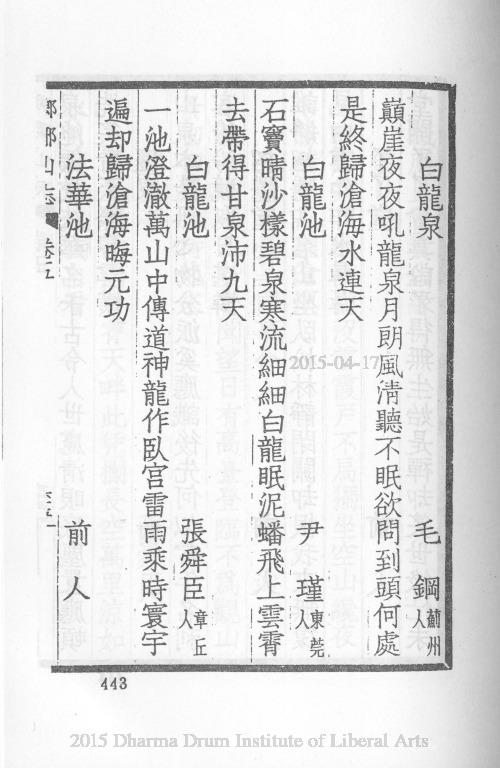 白龍泉 毛鋼 薊州人
巔崖夜夜吼龍泉月朗風清聽不眠欲問到頭何處
是終歸滄海水連天
白龍池 尹瑾 東莞人
石竇晴沙樣碧泉寒流細細白龍眠泥蟠飛上雲霄
去帶得甘泉沛九天
白龍池 張舜臣 章丘人
一池澄澈萬山中傳道神龍作臥宮雷雨乘時寰宇
遍却歸滄海晦元功
法華池 前人
山志 卷五
443
2015-04-17
2015 Dharma Drum Institute of Liberal Arts